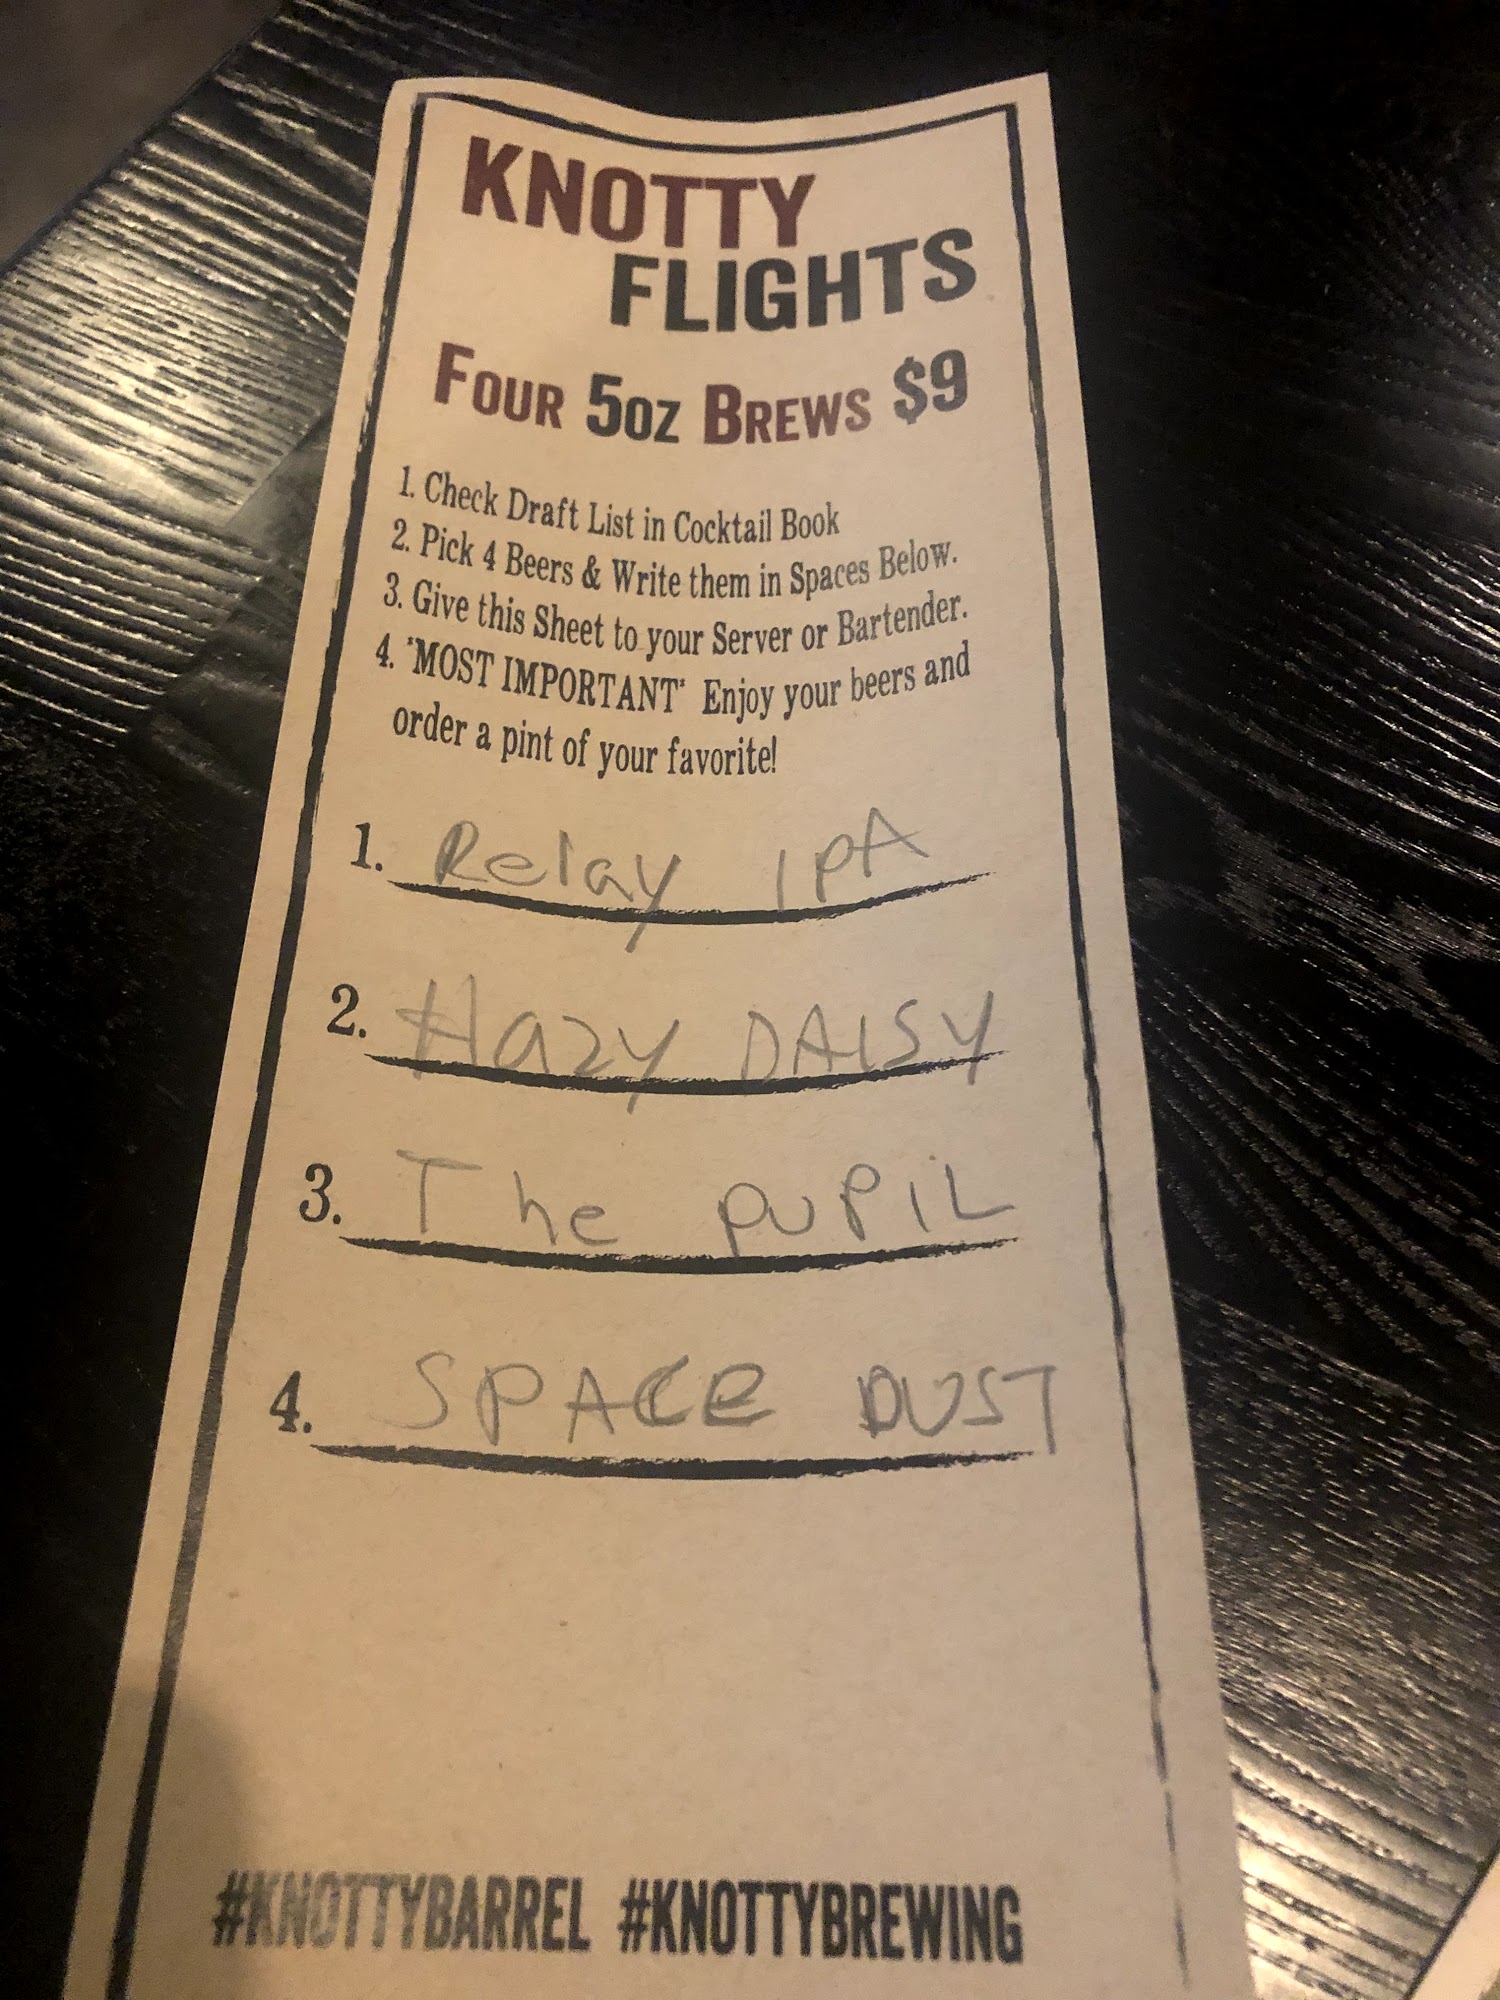 KNOTTY
FLIGHTS
FOUR 5OZ BREWS $9
1. Check Draft List in Cocktail Book
2. Pick 4 Beers & Write them in Spaces Below.
3. Give this Sheet to your Server or Bartender.
4. *MOST IMPORTANT* Enjoy your beers and
order a pint of your favorite!
1. Relay IPA
2. Hazy DAISY
3. The PUPIL
4. SPACE DUST
#KNOTTYBARREL #KNOTTYBREWING